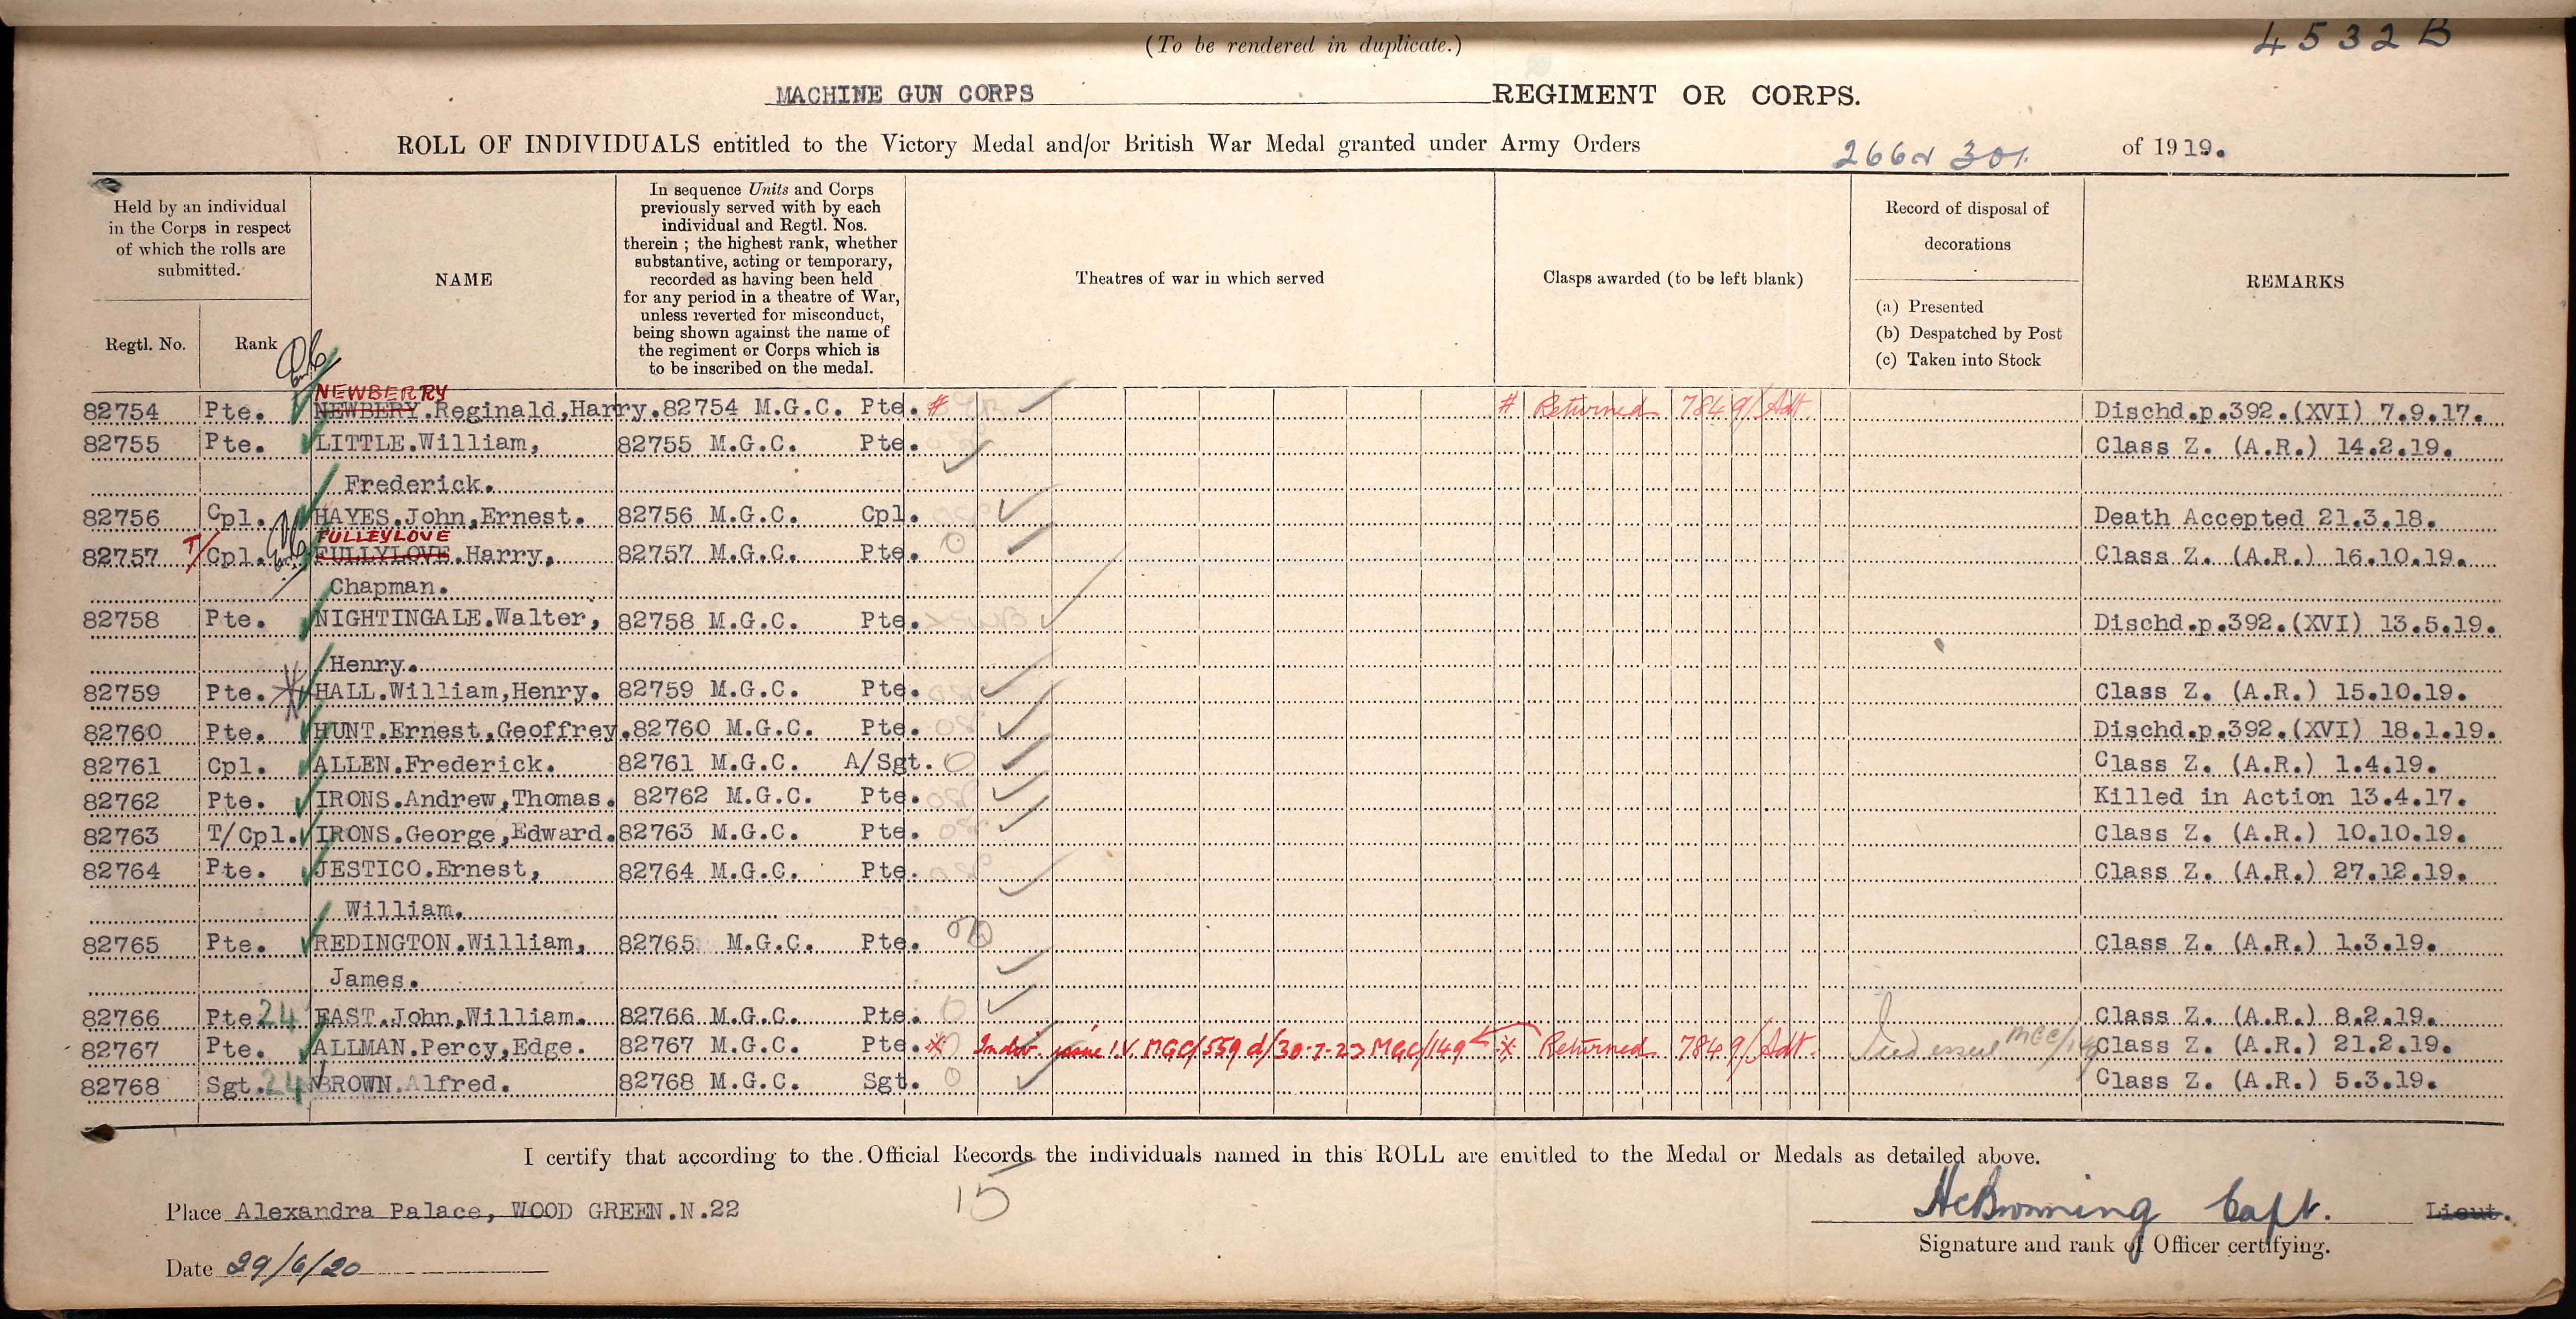 4532B
(To be rendered in duplicate.)
MACHINE GUN CORPS REGIMENT OR CORPS.
ROLL OF INDIVIDUALS entitled to the Victory Medal and/or British War Medal granted under Army Orders 266 & 301. of 1919.
Held by an individual
in the Corps in respect
of which the rolls are
submitted.
Regtl. No.
Rank
NAME
In sequence Units and Corps
previously served with by each
individual and Regtl. Nos.
therein ; the highest rank, whether
substantive, acting or temporary,
recorded as having been held
for any period in a theatre of War,
unless reverted for misconduct,
being shown against the name of
the regiment or Corps which is
to be inscribed on the medal.
Theatres of war in which served
Clasps awarded (to be left blank)
Record of disposal of
decorations
(a) Presented
(b) Despatched by Post
(c) Taken into Stock
REMARKS
NEWBERRY
82754 Pte. NEWBERY.Reginald,Harry. 82754 M.G.C. Pte. # # Returned 784 9/Adt. Dischd.p.392.(XVI) 7.9.17.
82755 Pte. LITTLE.William, 82755 M.G.C. Pte. Class Z. (A.R.) 14.2.19.
Frederick.
82756 Cpl. HAYES.John,Ernest. 82756 M.G.C. Cpl. Death Accepted 21.3.18.
FULLEYLOVE
82757 T/Cpl. FULLYLOVE.Harry, 82757 M.G.C. Pte. Class Z. (A.R.) 16.10.19.
Chapman.
82758 Pte. NIGHTINGALE.Walter, 82758 M.G.C. Pte. Dischd.p.392.(XVI) 13.5.19.
Henry.
82759 Pte. HALL.William,Henry. 82759 M.G.C. Pte. Class Z. (A.R.) 15.10.19.
82760 Pte. HUNT.Ernest,Geoffrey. 82760 M.G.C. Pte. Dischd.p.392.(XVI) 18.1.19.
82761 Cpl. ALLEN.Frederick. 82761 M.G.C. A/Sgt. Class Z. (A.R.) 1.4.19.
82762 Pte. IRONS.Andrew,Thomas. 82762 M.G.C. Pte. Killed in Action 13.4.17.
82763 T/Cpl. IRONS.George,Edward. 82763 M.G.C. Pte. Class Z. (A.R.) 10.10.19.
82764 Pte. JESTICO.Ernest, 82764 M.G.C. Pte. Class Z. (A.R.) 27.12.19.
William.
82765 Pte. REDINGTON.William, 82765 M.G.C. Pte. Class Z. (A.R.) 1.3.19.
James.
82766 Pte 24 EAST.John,William. 82766 M.G.C. Pte. Class Z. (A.R.) 8.2.19.
82767 Pte. ALLMAN.Percy,Edge. 82767 M.G.C. Pte. * Indiv. issue I.V. MGC/559 d/30-7-23 MGC/149 * Returned 784 9/Adt. Class Z. (A.R.) 21.2.19.
82768 Sgt. 24 BROWN.Alfred. 82768 M.G.C. Sgt. Class Z. (A.R.) 5.3.19.
I certify that according to the Official Records the individuals named in this ROLL are entitled to the Medal or Medals as detailed above.
15
Place Alexandra Palace, WOOD GREEN.N.22
HcBrowning Capt. Lieut.
Signature and rank of Officer certifying.
Date 29/6/20